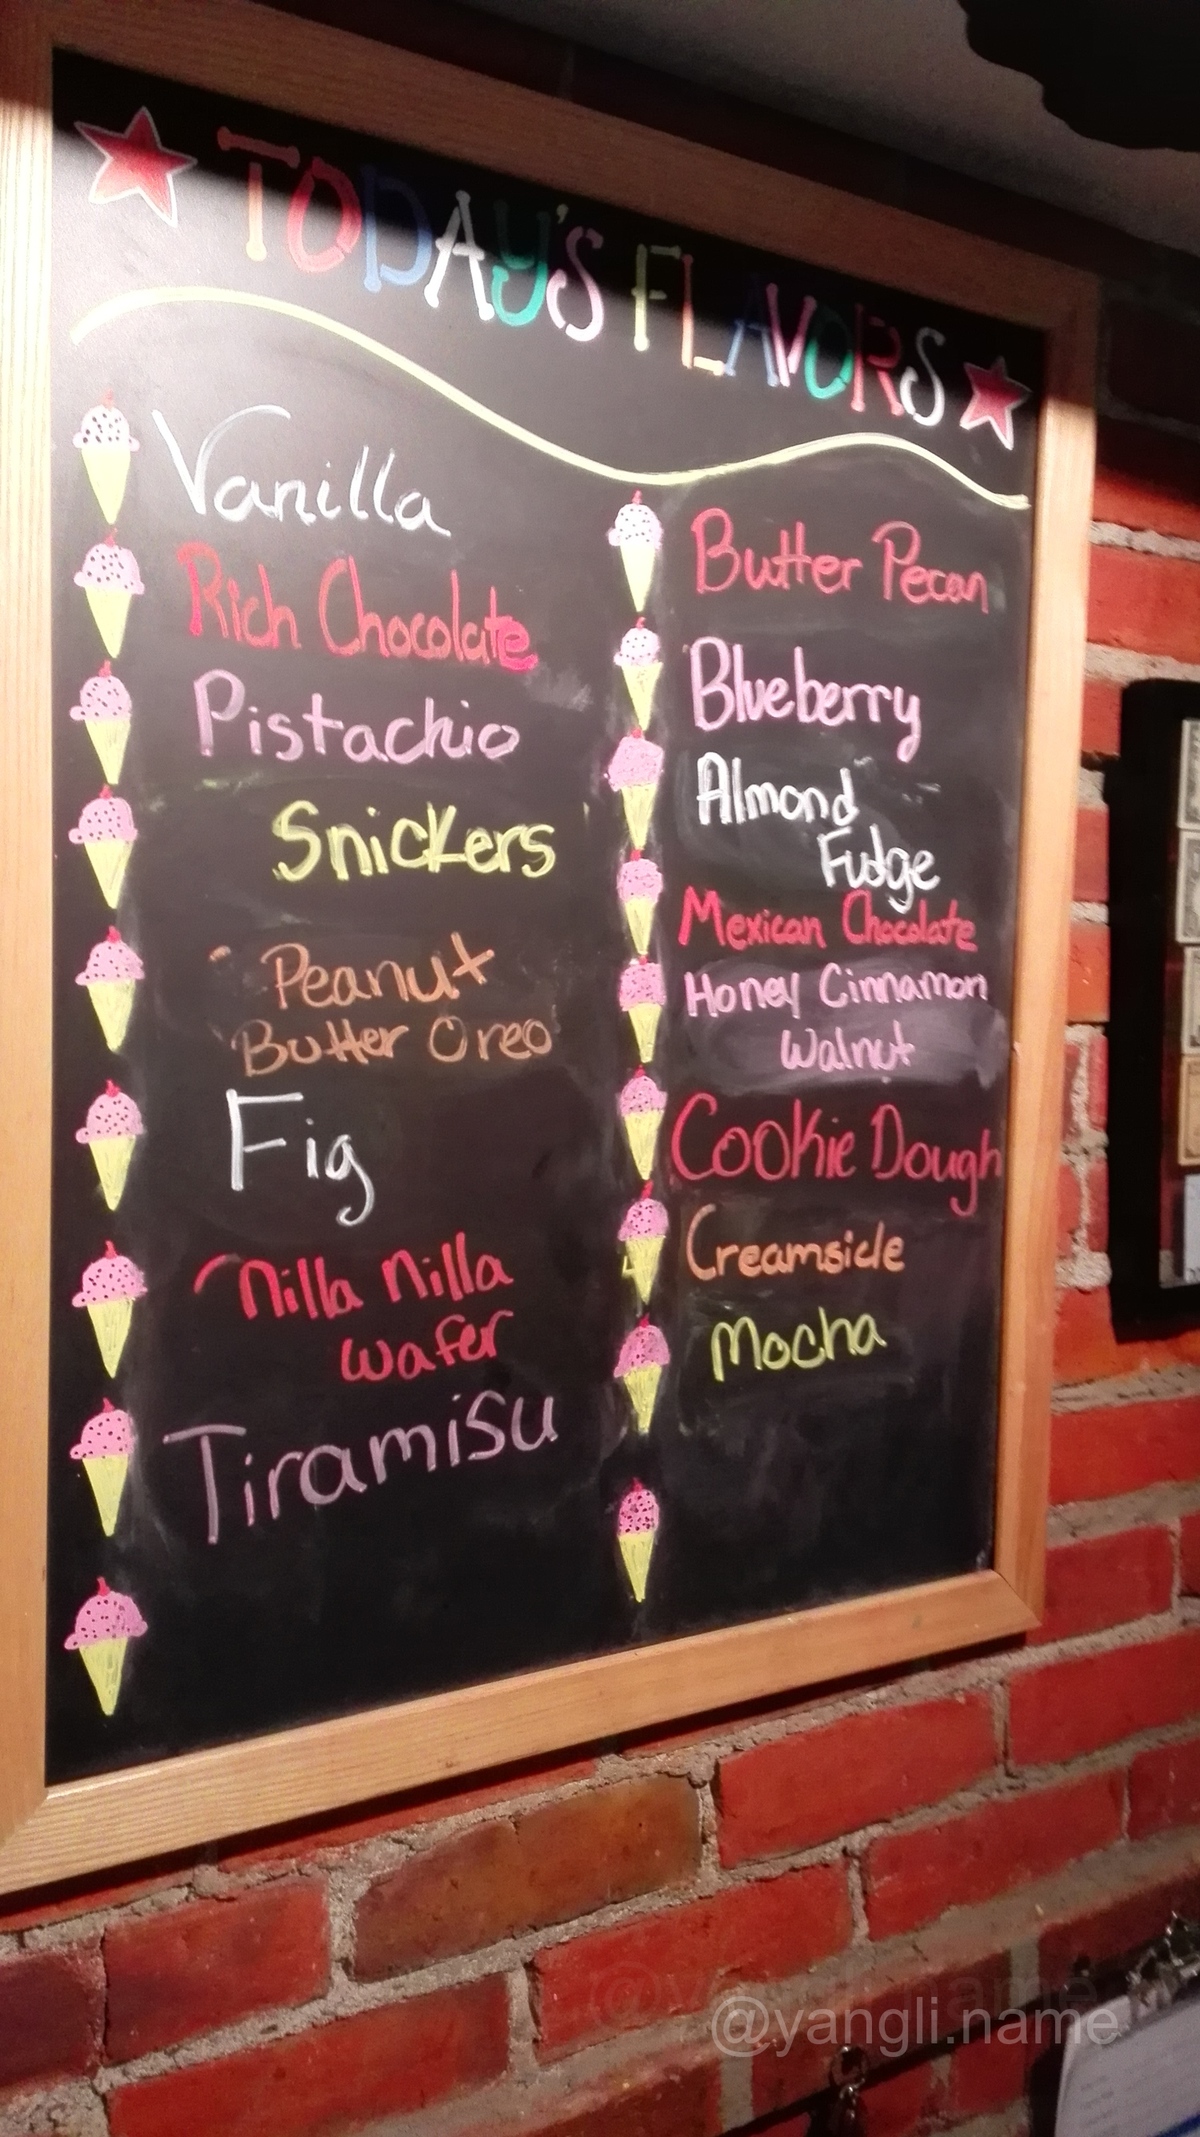 TODAY'S FLAVORS
Vanilla
Rich Chocolate
Pistachio
Snickers
Peanut
Butter Oreo
Fig
Nilla Nilla
Wafer
Tiramisu
Butter Pecan
Blueberry
Almond
Fudge
Mexican Chocolate
Honey Cinnamon
Walnut
Cookie Dough
Creamsicle
Mocha
@yangli.name